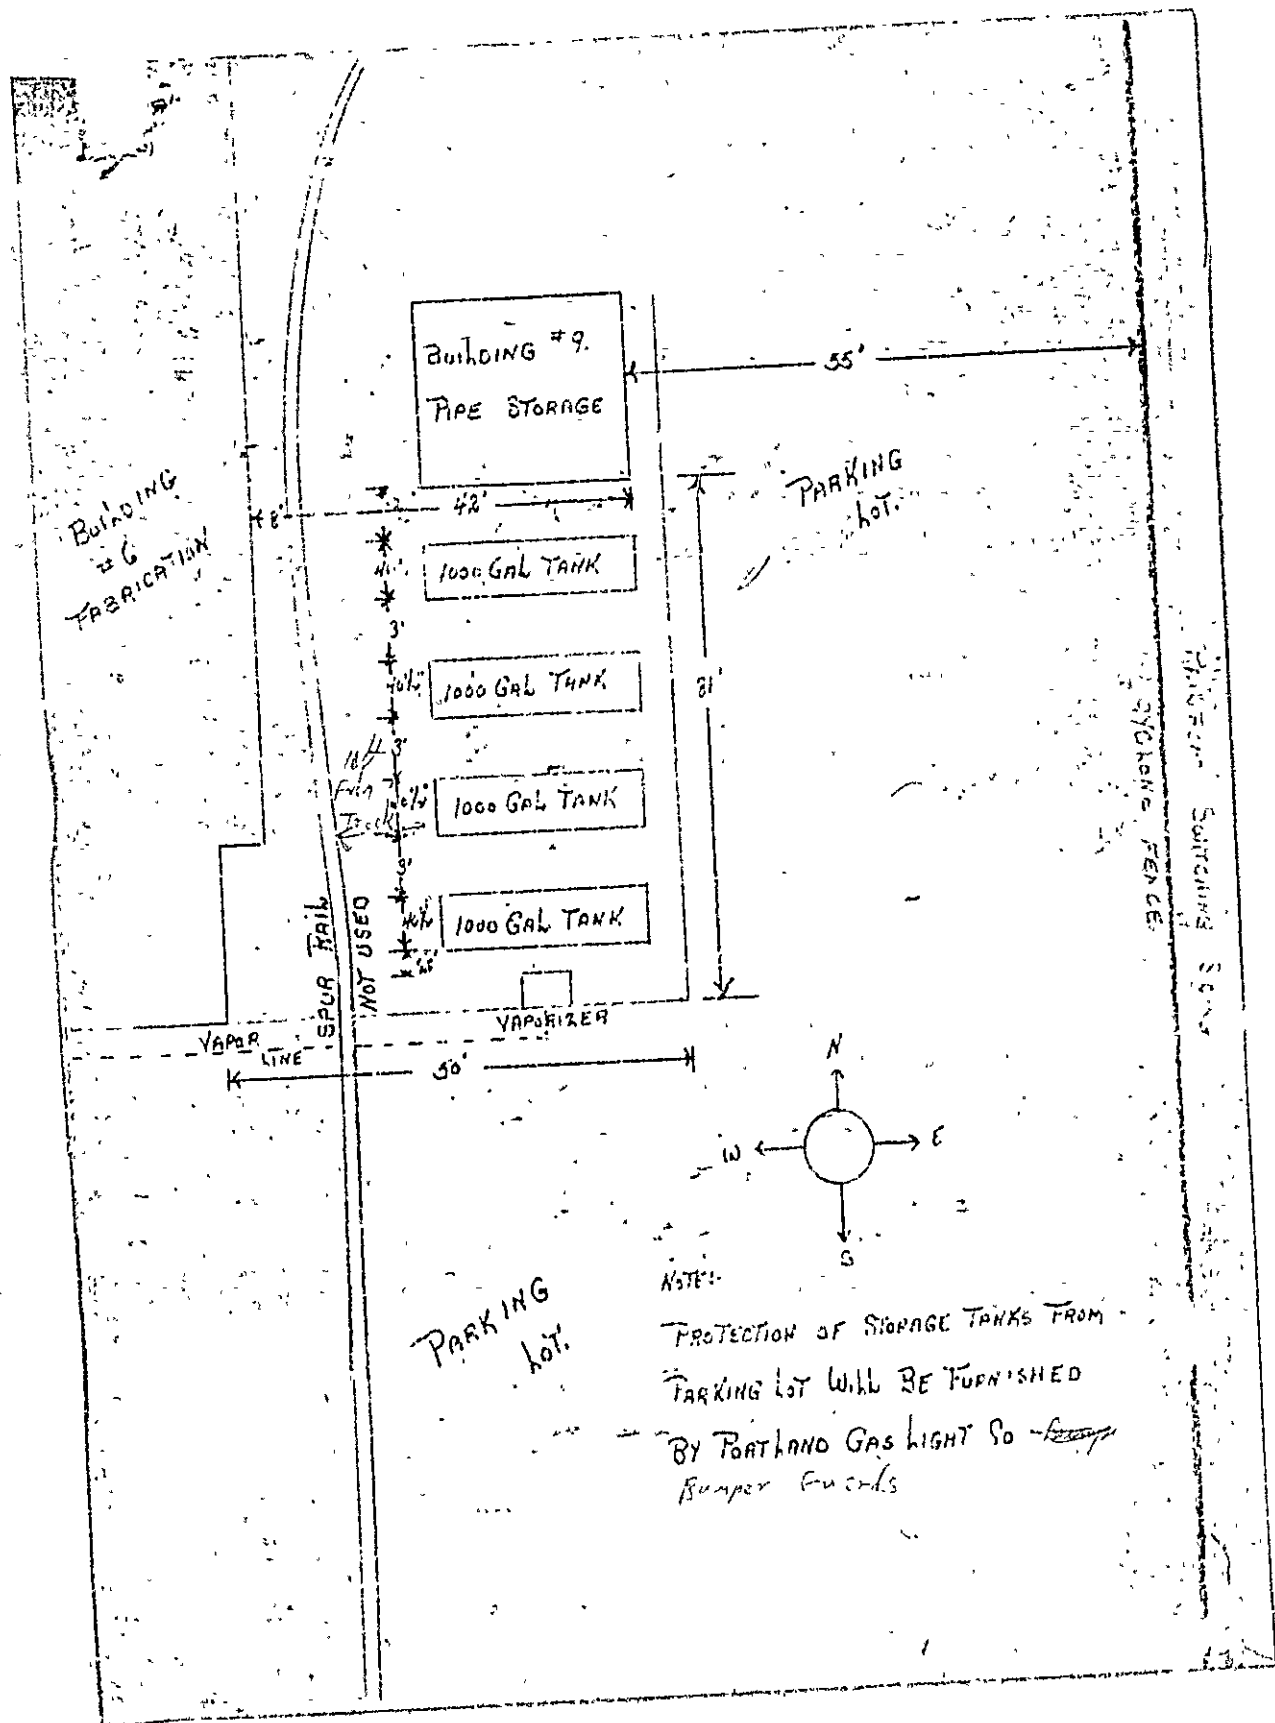 BUILDING #9.
PIPE STORAGE
55'
PARKING
LOT.
BUILDING
# 6
FABRICATION
8'
42'
1000 GAL TANK
3'
1000 GAL TANK
3'
10 ft
From
Track
1000 GAL TANK
3'
1000 GAL TANK
SPUR RAIL
NOT USED
VAPORIZER
VAPOR
LINE
50'
CYCLONE FENCE
SWITCHING
N
W
E
S
PARKING
LOT.
NOTE:-
PROTECTION OF STORAGE TANKS FROM
PARKING LOT WILL BE FURNISHED
BY PORTLAND GAS LIGHT CO
Bumper Guards